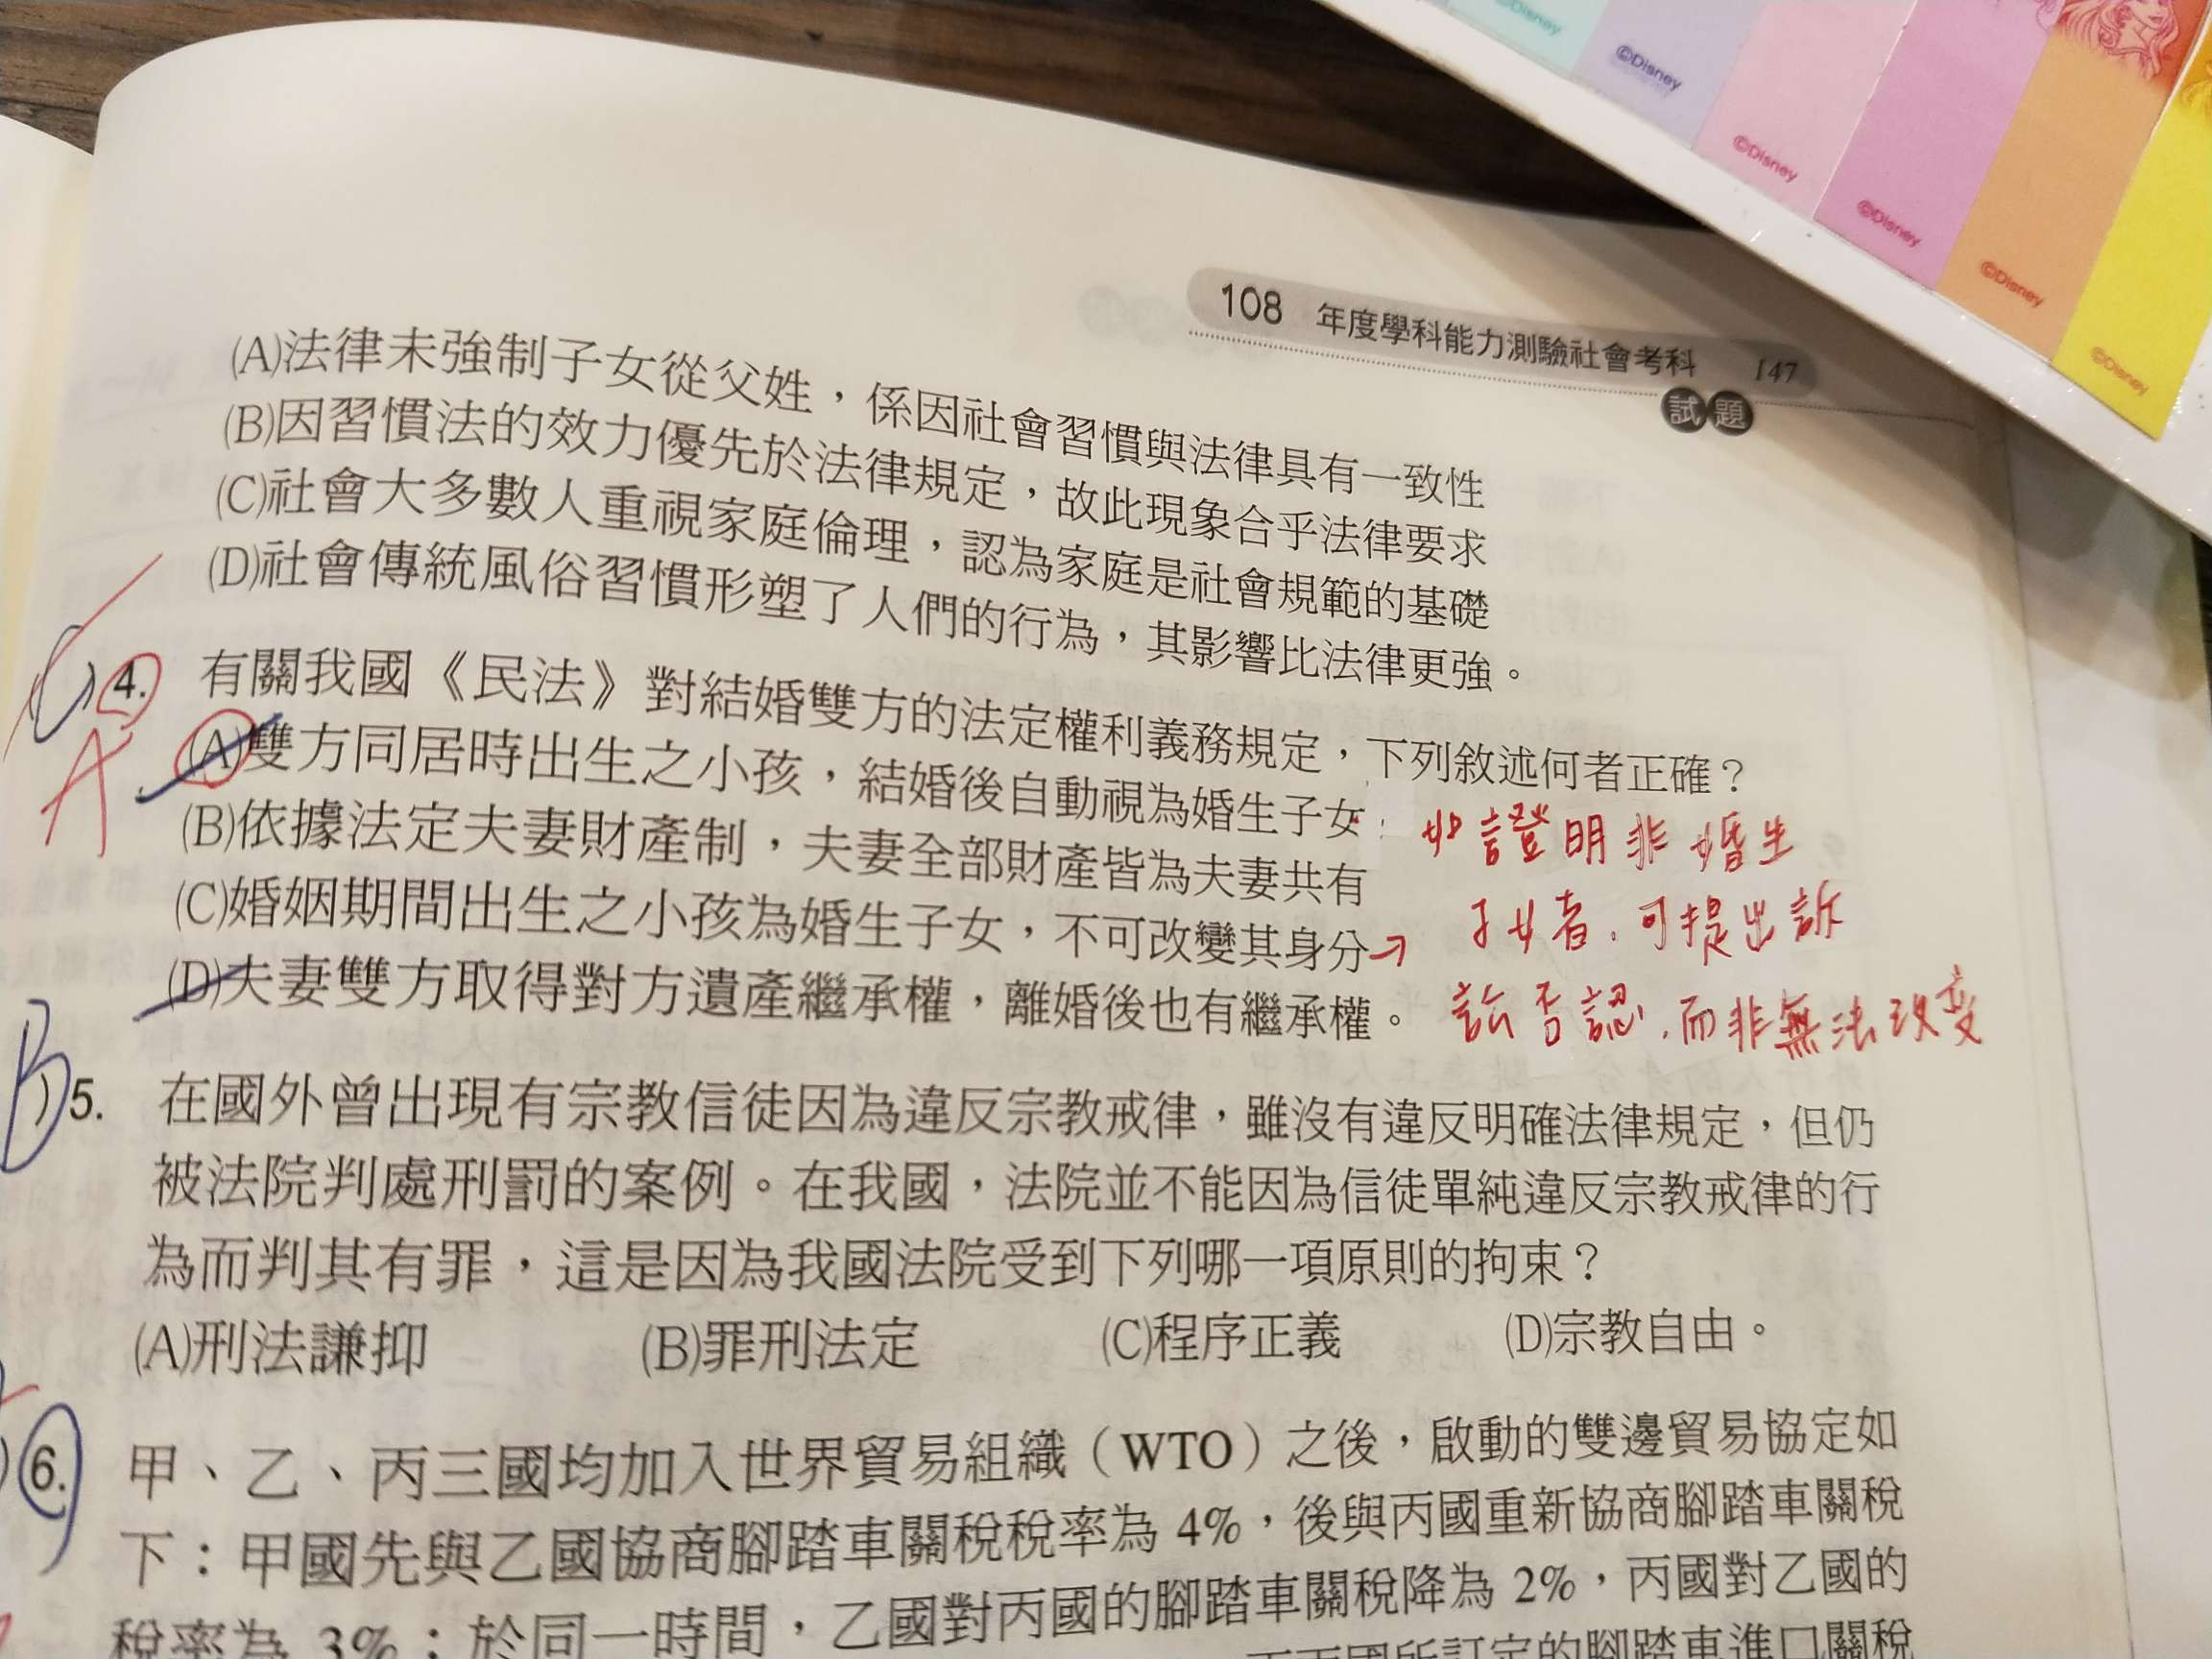 ©Disney
©Disney
©Disney
©Disney
©Disney
©Disney
108 年度學科能力測驗社會考科 147
試題
(A)法律未強制子女從父姓，係因社會習慣與法律具有一致性
(B)因習慣法的效力優先於法律規定，故此現象合乎法律要求
(C)社會大多數人重視家庭倫理，認為家庭是社會規範的基礎
(D)社會傳統風俗習慣形塑了人們的行為，其影響比法律更強。
4. 有關我國《民法》對結婚雙方的法定權利義務規定，下列敘述何者正確？
A
(A)雙方同居時出生之小孩，結婚後自動視為婚生子女
(B)依據法定夫妻財產制，夫妻全部財產皆為夫妻共有
(C)婚姻期間出生之小孩為婚生子女，不可改變其身分→
(D)夫妻雙方取得對方遺產繼承權，離婚後也有繼承權。
如證明非婚生
子女者，可提出訴
訟否認，而非無法改变
B
5. 在國外曾出現有宗教信徒因為違反宗教戒律，雖沒有違反明確法律規定，但仍
被法院判處刑罰的案例。在我國，法院並不能因為信徒單純違反宗教戒律的行
為而判其有罪，這是因為我國法院受到下列哪一項原則的拘束？
(A)刑法謙抑 (B)罪刑法定 (C)程序正義 (D)宗教自由。
6. 甲、乙、丙三國均加入世界貿易組織（WTO）之後，啟動的雙邊貿易協定如
下：甲國先與乙國協商腳踏車關稅稅率為 4%，後與丙國重新協商腳踏車關稅
稅率為 3%；於同一時間，乙國對丙國的腳踏車關稅降為 2%，丙國對乙國的
國所訂定的腳踏車進口關稅